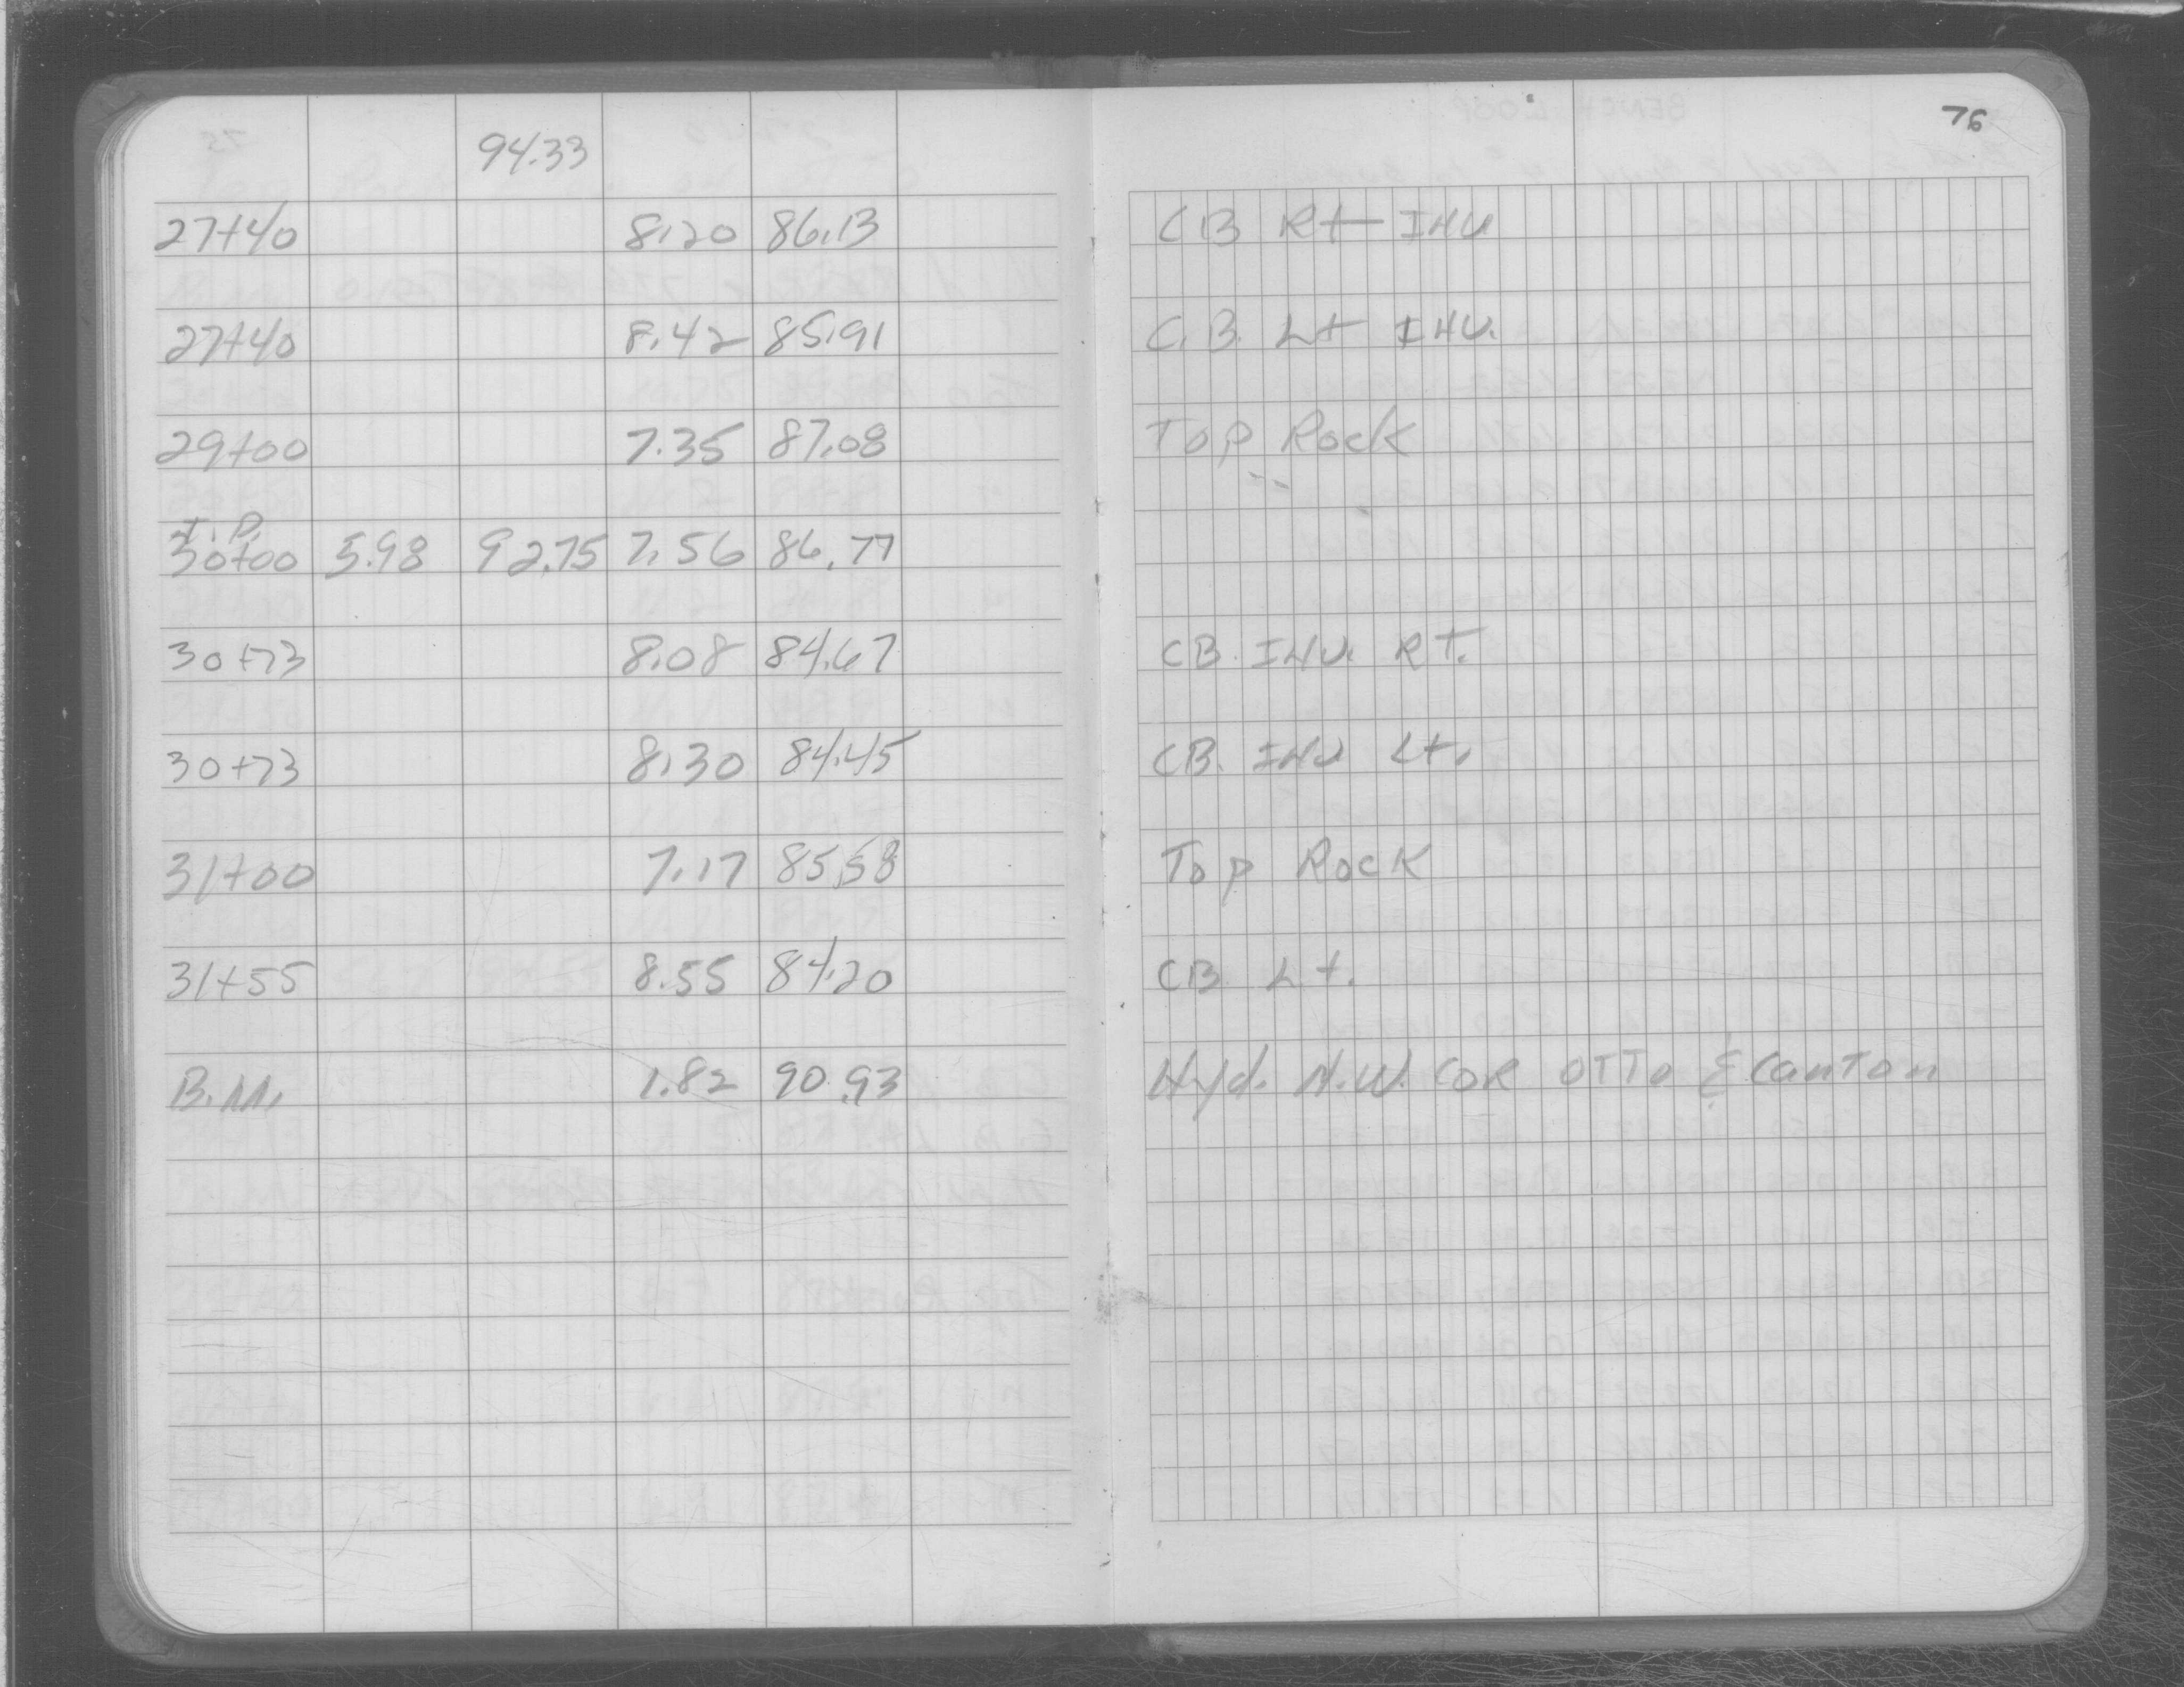 76
94.33
27+40 8.20 86.13 CB Rt INV
27+40 8.42 85.91 C.B. Lt INV.
29+00 7.35 87.08 Top Rock
T.P.
30+00 5.98 92.75 7.56 86.77
30+73 8.08 84.67 CB. INV. RT.
30+73 8.30 84.45 CB. INV Lt.
31+00 7.17 85.58 Top Rock
31+55 8.55 84.20 CB Lt.
B.M. 1.82 90.93 Hyd. N.W. COR OTTO & Canton